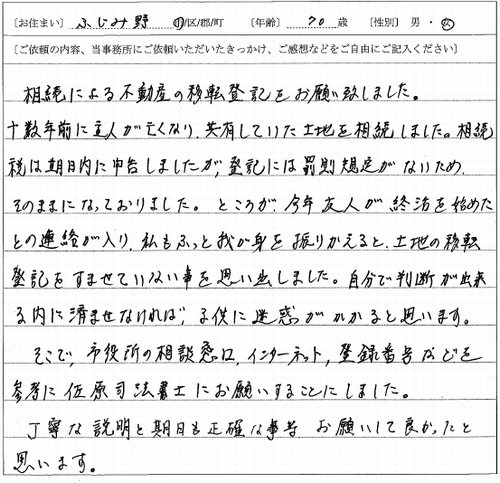 〔お住まい〕 ふじみ野 市/区/郡/町 〔年齢〕 70 歳 〔性別〕 男 ・ 女
〔ご依頼の内容、当事務所にご依頼いただいたきっかけ、ご感想などをご自由にご記入ください〕
相続による不動産の移転登記をお願い致しました。
十数年前に主人が亡くなり、共有していた土地を相続しました。相続
税は期日内に申告しましたが、登記には罰則規定がないため、
そのままになっておりました。ところが、今年友人が終活を始めた
との連絡が入り、私もふっと我が身を振りかえると、土地の移転
登記をすませていない事を思い出しました。自分で判断が出来
る内に済ませなければ、子供に迷惑がかかると思います。
そこで、市役所の相談窓口、インターネット、登録番号などを
参考に佐原司法書士にお願いすることにしました。
丁寧な説明と期日も正確な事等 お願いして良かったと
思います。